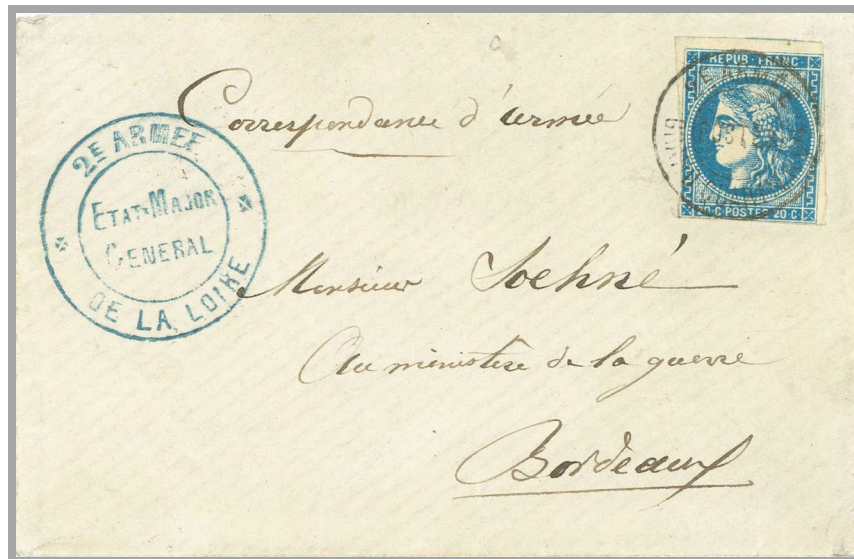 Correspondance d'armée
REPUB·FRANC·
20·C POSTES 20·C
2E ARMEE
ETAT-MAJOR
GENERAL
DE LA LOIRE
Monsieur Soehné
Au ministère de la guerre
Bordeaux